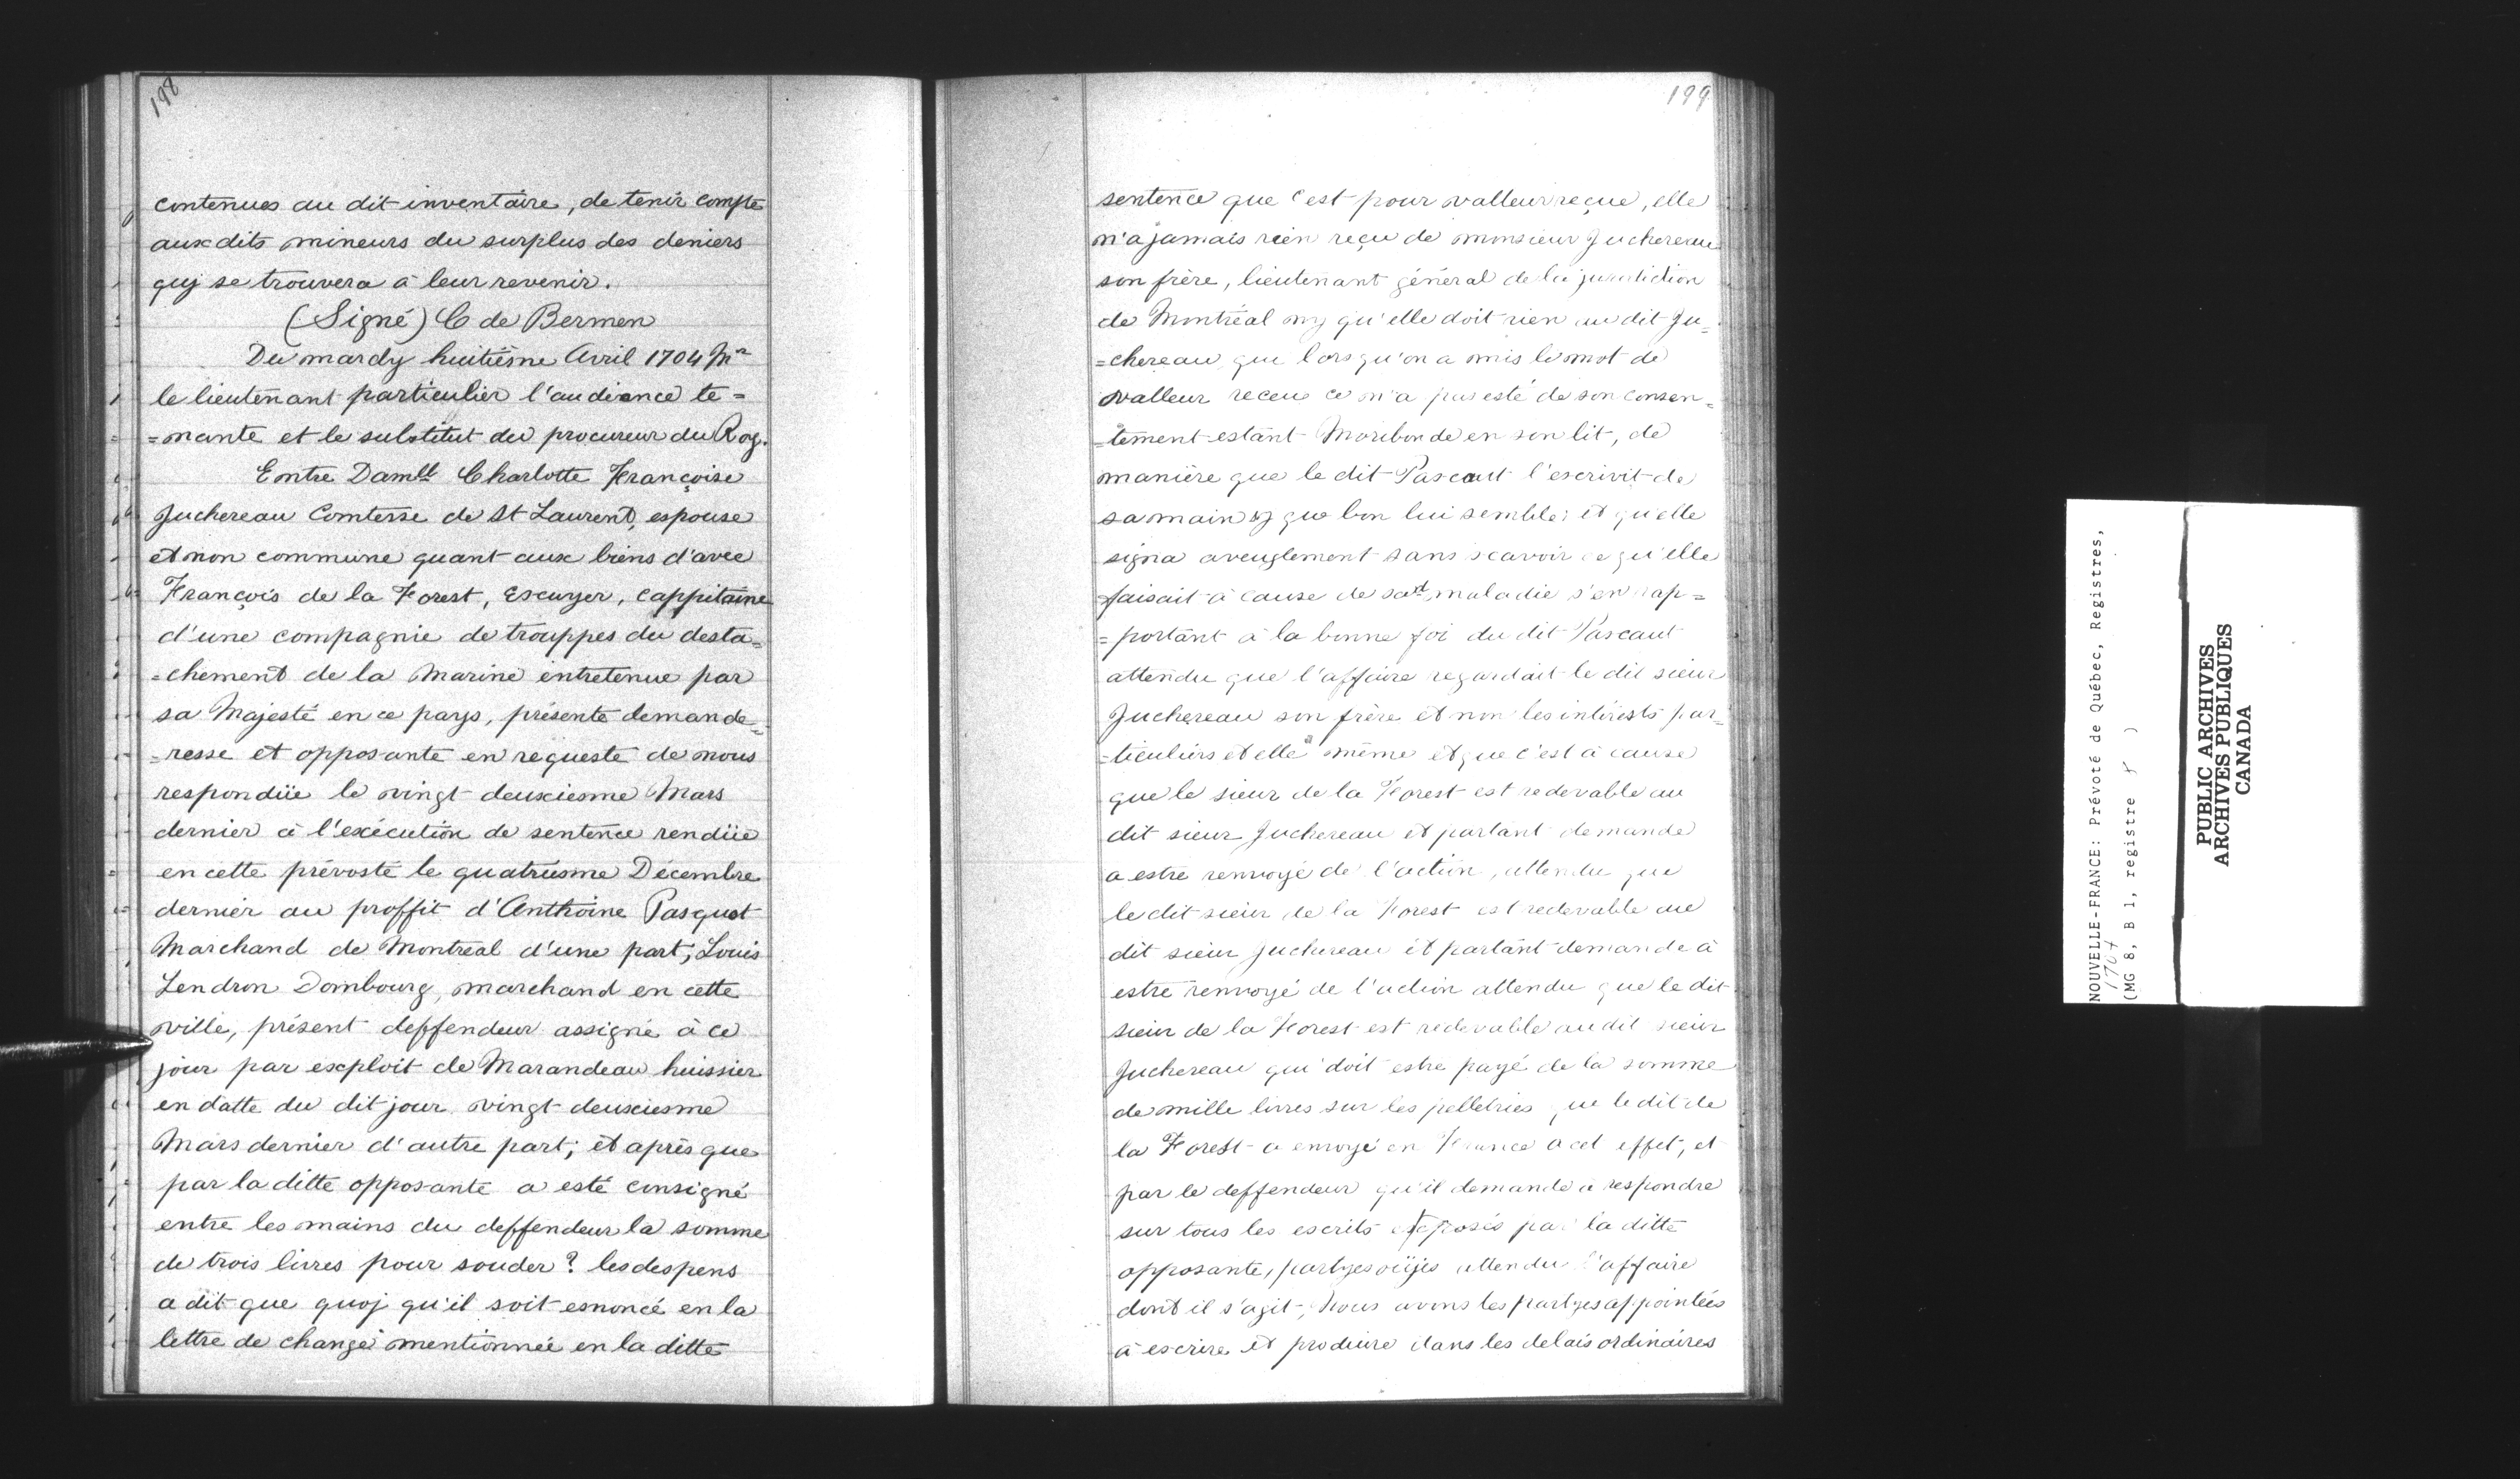 198
contenues au dit inventaire, de tenir compte
aux dits mineurs du surplus des deniers
quj se trouvera à leur revenir.
(Signé) C de Bermen
Du mardy huitiésme Avril 1704 Mr
le lieutenant particulier l'audiance te=
=nante et le substitut du procureur du Roy.
Entre Damlle Charlotte Françoise
Juchereau Comtesse de St Laurent, espouse
et non commune quant aux biens d'avec
François de la Forest, Escuyer, Cappitaine
d'une compagnie de trouppes du desta=
=chement de la Marine entretenue par
sa Majesté en ce pays, présente demande=
=resse et opposante en requeste de nous
respondüe le vingt deuxiesme Mars
dernier à l'exécution de sentence rendüe
en cette prévosté le quatriesme Décembre
dernier au proffit d'Anthoine Pasquet
Marchand de Montréal d'une part; Louis
Lendron Dombourg, marchand en cette
ville, présent deffendeur assigné à ce
jour par exploit de Marandeau huissier
en datte du dit jour vingt deuxiesme
Mars dernier d'autre part; et après que
par la ditte opposante a esté consigné
entre les mains du deffendeur la somme
de trois livres pour souder? les despens
a dit que quoj qu'il soit esnoncé en la
lettre de change mentionnée en la ditte
199
sentence que c'est pour valleur reçue, elle
n'a jamais rien reçu de monsieur Juchereau
son frère, lieutenant général de la juridiction
de Montréal ny qu'elle doit rien au dit Ju=
=chereau, que lorsqu'on a mis le mot de
valleur receu ce n'a pas esté de son consen=
=tement estant Moribonde en son lit, de
manière que le dit Pascaut l'escrivit de
sa main que bon lui semble; et qu'elle
signa aveuglement sans scavoir ce qu'elle
faisait à cause de sad. maladie s'en rap=
=portant à la bonne foi du dit Pascaut
attendu que l'affaire regardait le dit sieur
Juchereau son frère et non les intérests par=
=ticuliers et elle même et que c'est à cause
que le sieur de la Forest est redevable au
dit sieur Juchereau et partant demande
a estre renvoyé de l'action, attendu que
le dit sieur de la Forest est redevable au
dit sieur Juchereau et partant demande à
estre renvoyé de l'action attendu que le dit
sieur de la Forest est redevable au dit sieur
Juchereau qui doit estre payé de la somme
de mille livres sur les pelletries que le dit de
la Forest a envoyé en France a cet effet, et
par le deffendeur qu'il demande à respondre
sur tous les escrits exposés par la ditte
opposante, partyes oüyes attendu l'affaire
dont il s'agit, Nous avons les partyes appointées
à escrire et produire dans les delais ordinaires
NOUVELLE-FRANCE: Prévoté de Québec, Registres,
1704
(MG 8, B 1, registre )
PUBLIC ARCHIVES
ARCHIVES PUBLIQUES
CANADA